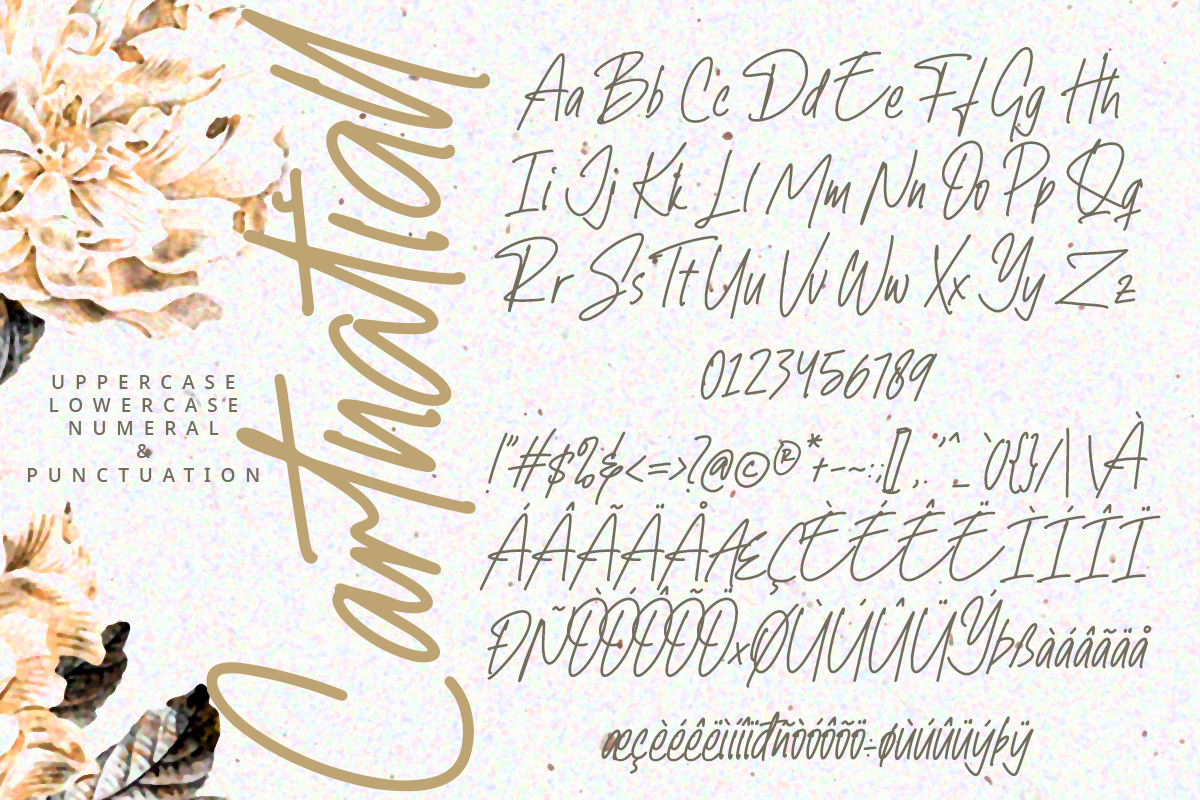 Cartnatiall
UPPERCASE
LOWERCASE
NUMERAL
&
PUNCTUATION
Aa Bb Cc Dd Ee Ff Gg Hh
Ii Jj Kk Ll Mm Nn Oo Pp Qq
Rr Ss Tt Uu Vv Ww Xx Yy Zz
0123456789
!"#$%&<=>?@©®*+-~:;[],.¨'^_`'{}/|\À
ÁÂÃÄÅÆÇÈÉÊËÌÍÎÏ
ÐÑÒÓÔÕÖ×ØÙÚÛÜÝþßàáâãäå
æçèéêëìíîïðñòóôõö÷øùúûüýþÿ